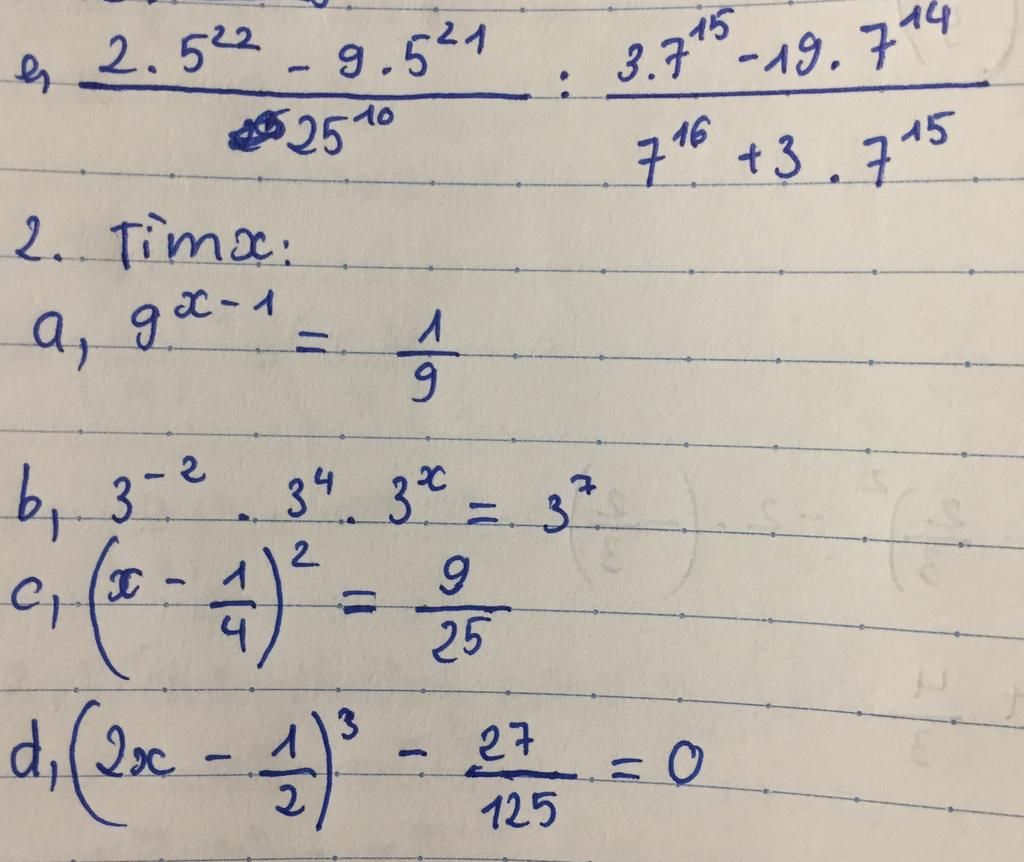 e, (2.5²² - 9.5²¹)/25¹⁰ : (3.7¹⁵ - 19.7¹⁴)/(7¹⁶ + 3.7¹⁵)
2. Tìm x:
a, 9ˣ⁻¹ = 1/9
b, 3⁻² . 3⁴ . 3ˣ = 3⁷
c, (x - 1/4)² = 9/25
d, (2x - 1/2)³ - 27/125 = 0